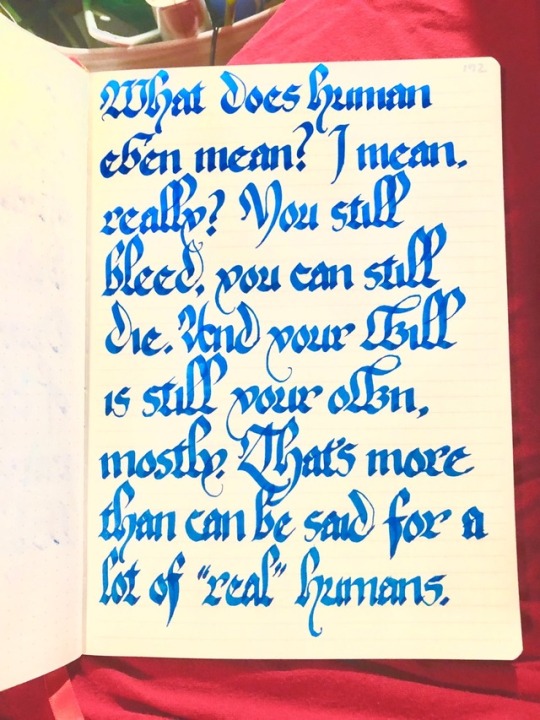 What does human
even mean? I mean,
really? You still
bleed, you can still
die. And your Will
is still your own,
mostly. That's more
than can be said for a
lot of "real" humans.